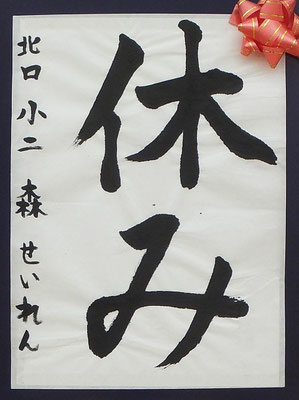 休み
北口小二 森せいれん